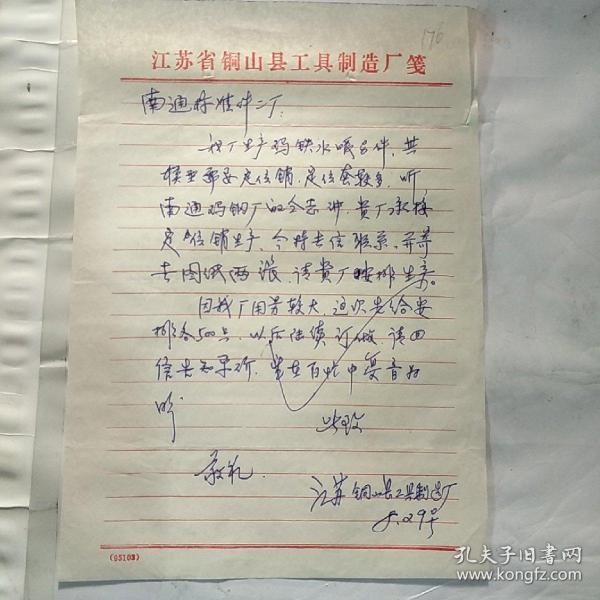 176
江苏省铜山县工具制造厂笺
南通标准件二厂:
我厂生产玛铁水暖另件,其
模型需要定位销,定位套较多,听
南通玛钢厂的同志讲,贵厂承接
定位销生产,今特去信联系,并寄
去图纸两张,请贵厂安排生产。
因我厂用劳较大,这次先给安
排各500只,以后陆续订做,请回
信告知单价,望在百忙中复音为
盼
此致
敬礼
江苏铜山县工具制造厂
8.29号
(95103)
孔夫子旧书网
www.kongfz.com